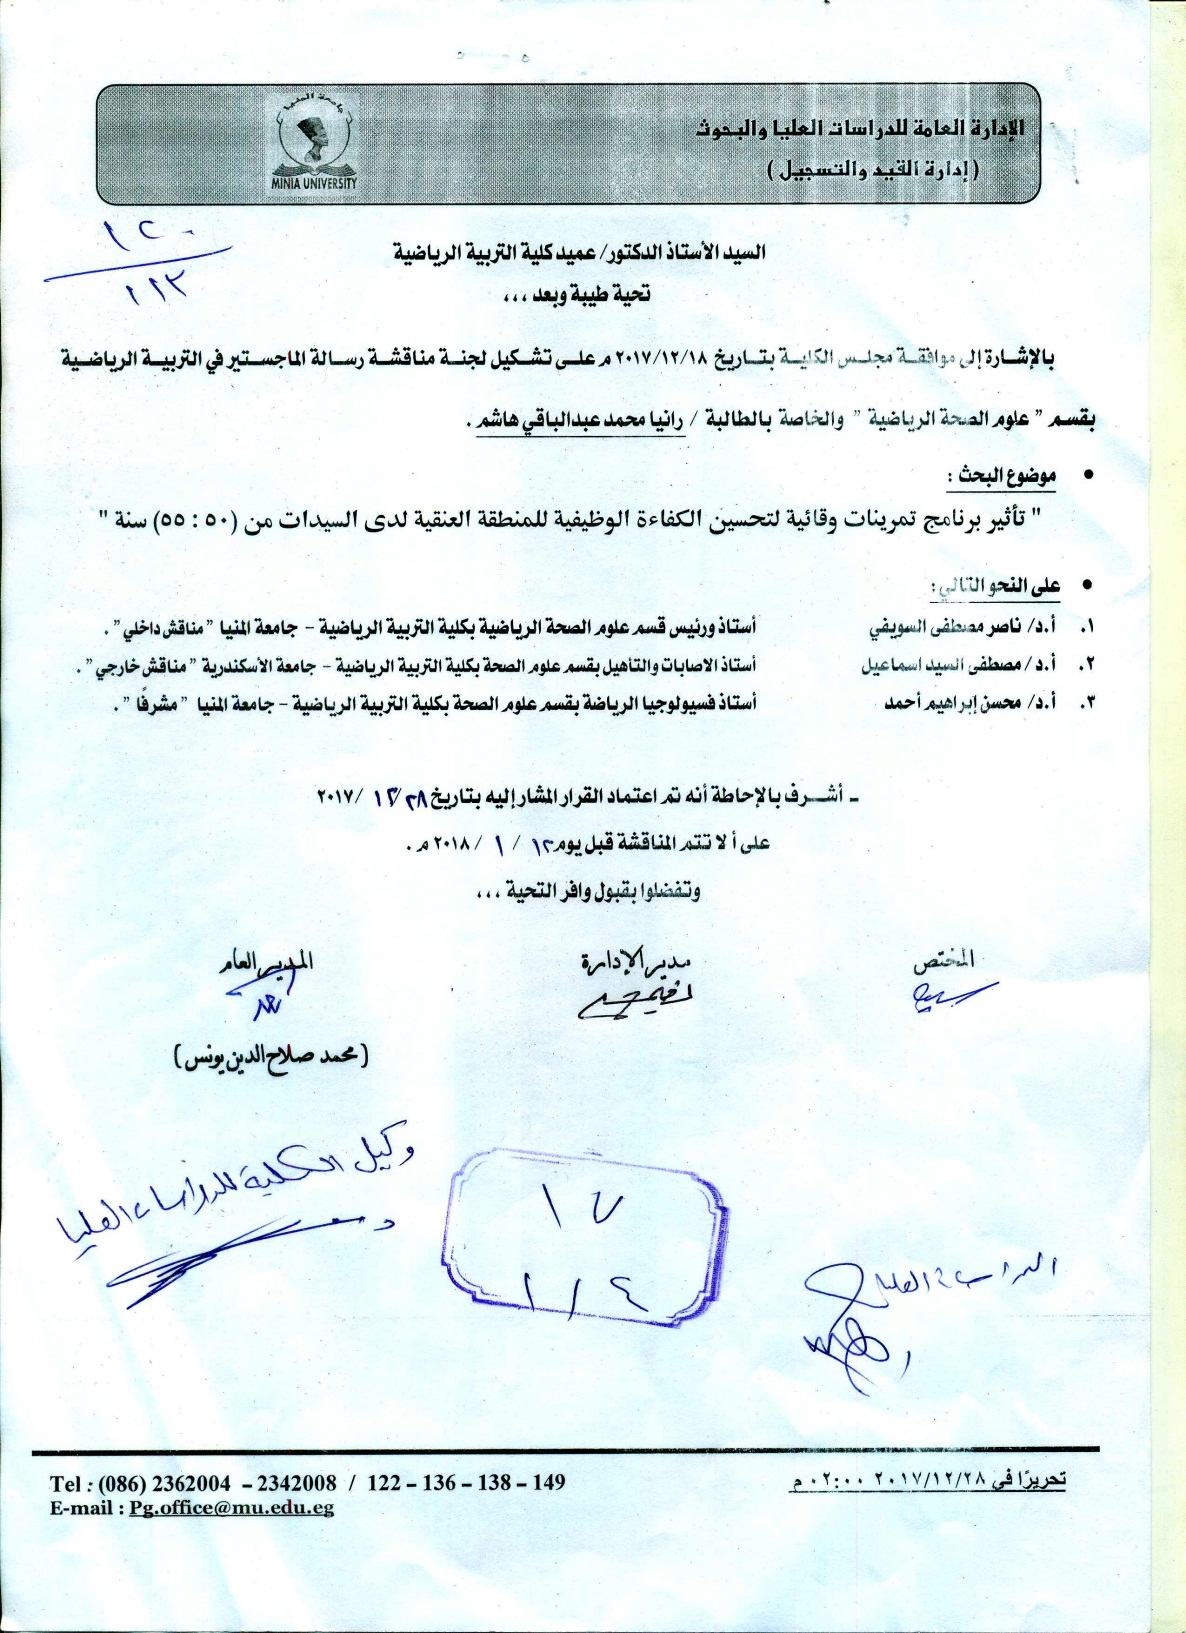 الإدارة العامة للدراسات العليا والبحوث
(إدارة القيد والتسجيل)
جامعة المنيا
MINIA UNIVERSITY
١٢٠
١١٣
السيد الأستاذ الدكتور/ عميد كلية التربية الرياضية
تحية طيبة وبعد ،،،
بالإشارة إلى موافقة مجلس الكلية بتاريخ ٢٠١٧/١٢/١٨ م على تشكيل لجنة مناقشة رسالة الماجستير في التربية الرياضية
بقسم " علوم الصحة الرياضية " والخاصة بالطالبة / رانيا محمد عبدالباقي هاشم .
• موضوع البحث :
" تأثير برنامج تمرينات وقائية لتحسين الكفاءة الوظيفية للمنطقة العنقية لدى السيدات من (٥٠ : ٥٥) سنة "
• على النحو التالي :
١. أ.د/ ناصر مصطفى السويفي أستاذ ورئيس قسم علوم الصحة الرياضية بكلية التربية الرياضية - جامعة المنيا "مناقش داخلي" .
٢. أ.د/ مصطفى السيد اسماعيل أستاذ الاصابات والتأهيل بقسم علوم الصحة بكلية التربية الرياضية - جامعة الأسكندرية "مناقش خارجي" .
٣. أ.د/ محسن إبراهيم أحمد أستاذ فسيولوجيا الرياضة بقسم علوم الصحة بكلية التربية الرياضية - جامعة المنيا " مشرفًا " .
ـ أشرف بالإحاطة أنه تم اعتماد القرار المشار إليه بتاريخ ٢٨/ ١٢ /٢٠١٧
على ألا تتم المناقشة قبل يوم ١٢ / ١ / ٢٠١٨ م .
وتفضلوا بقبول وافر التحية ،،،
المختص مدير الإدارة المدير العام
(محمد صلاح الدين يونس)
وكيل الكلية للدراسات العليا
١٧
١/٤
الدراسات العليا
تحريرًا في ٢٠١٧/١٢/٢٨ ٠٢:٠٠ م
Tel : (086) 2362004 – 2342008 / 122 – 136 – 138 – 149
E-mail : Pg.office@mu.edu.eg